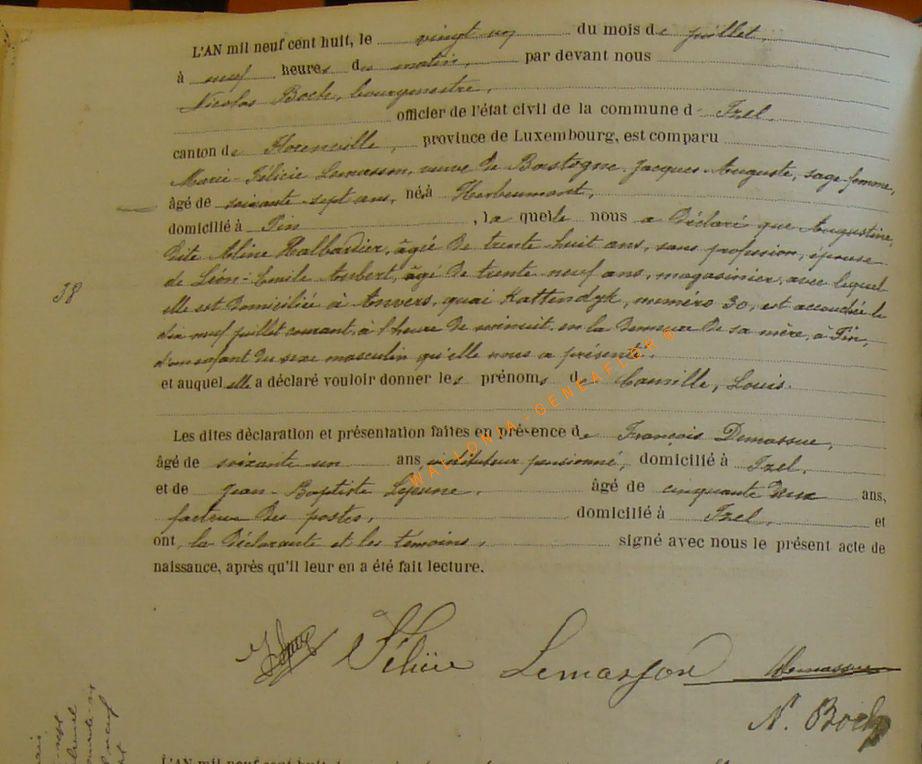 L'AN mil neuf cent huit, le vingt un du mois de juillet,
à neuf heures du matin, par devant nous
Nicolas Boch, bourgmestre,
officier de l'état civil de la commune d' Izel
canton de Florenville, province de Luxembourg, est comparu
Marie-Félicie Lemasson, veuve de Bastogne Jacques Auguste, sage-femme,
âgé de soixante sept ans, née à Herbeumont,
domicilié à Pin, laquelle nous a déclaré que Augustine,
dite Aline Halbardier, âgée de trente huit ans, sans profession, épouse
de Léon-Emile Aubert, âgé de trente neuf ans, magasinier, avec lequel
elle est domiciliée à Anvers, quai Kattendyk, numéro 30, est accouchée le
dix neuf juillet courant, à l'heure de minuit, en la demeure de sa mère, à Pin,
d'un enfant du sexe masculin qu'elle nous a présenté.
38
et auquel elle a déclaré vouloir donner les prénoms de Camille, Louis.
Les dites déclaration et présentation faites en présence de François Demassue,
âgé de soixante un ans instituteur pensionné, domicilié à Izel,
et de Jean-Baptiste Lejeune, âgé de cinquante deux ans,
facteur des postes, domicilié à Izel, et
ont, la déclarante et les témoins, signé avec nous le présent acte de
naissance, après qu'il leur en a été fait lecture.
WALLONIA-GENEAFLORE©
Félicie Lemasson Demassue
N. Boch
L'AN mil neuf cent huit